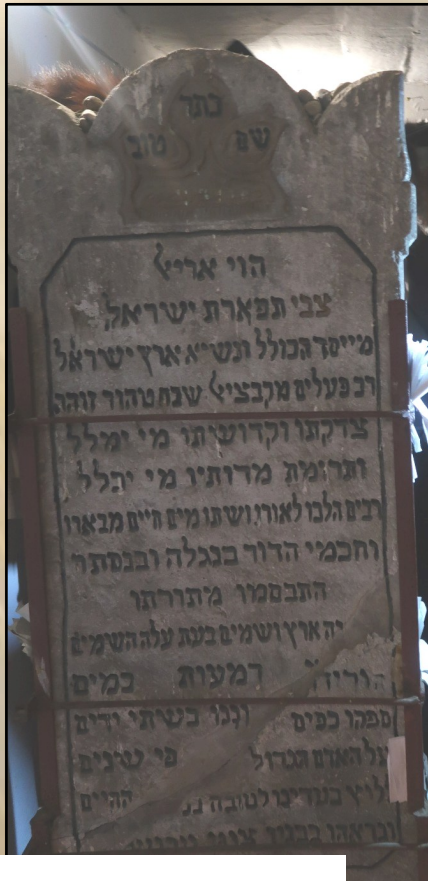 כתר
שם טוב
הוי אריץ
צבי תפארת ישראל
מייסד הכולל ונשיא ארץ ישראל
רב פעלים מקבציץ שבח טהור זוהר
צדקתו וקדושתו מי ימלל
ותרומת מדותיו מי יהלל
רבים הלכו לאורו ושתו מים חיים מבארו
וחכמי הדור בנגלה ובנסתר
התבסמו מתורתו
יה ארץ ושמים בעת עלה השמים
הורידו דמעות כמים
ספקו כפים וננו בשתי ידים
על האדם הגדול פי שנים
לויץ בעדינו לטובה החיים